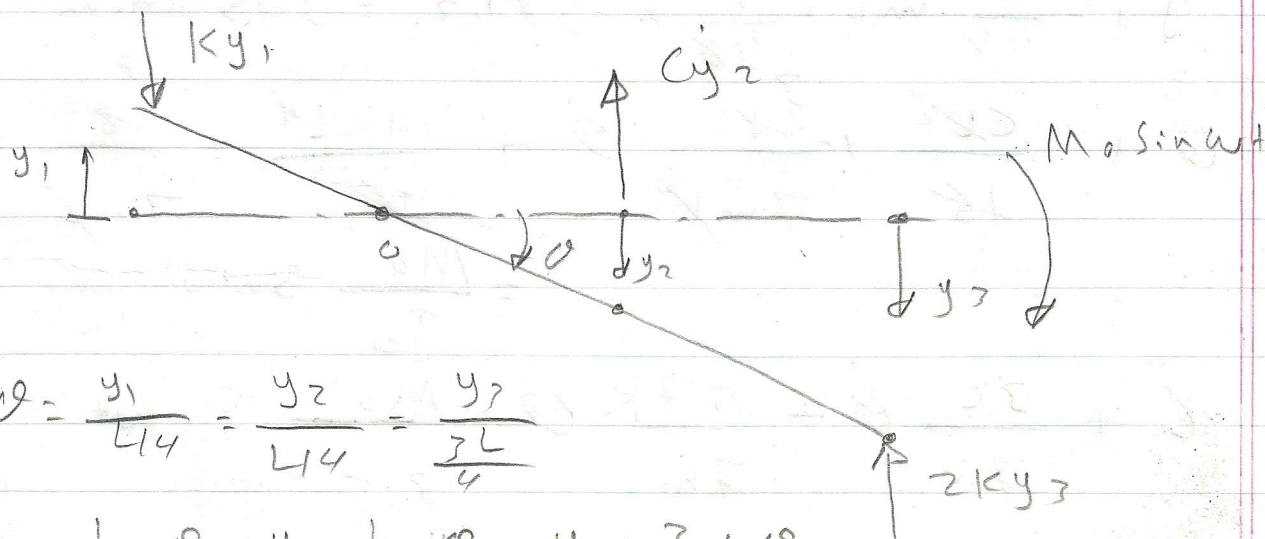 Ky₁
Cẏ₂
M₀ Sin ωt
y₁
O
θ
y₂
y₃
θ = y₁/L/4 = y₂/L/4 = y₃/3L/4
2Ky₃